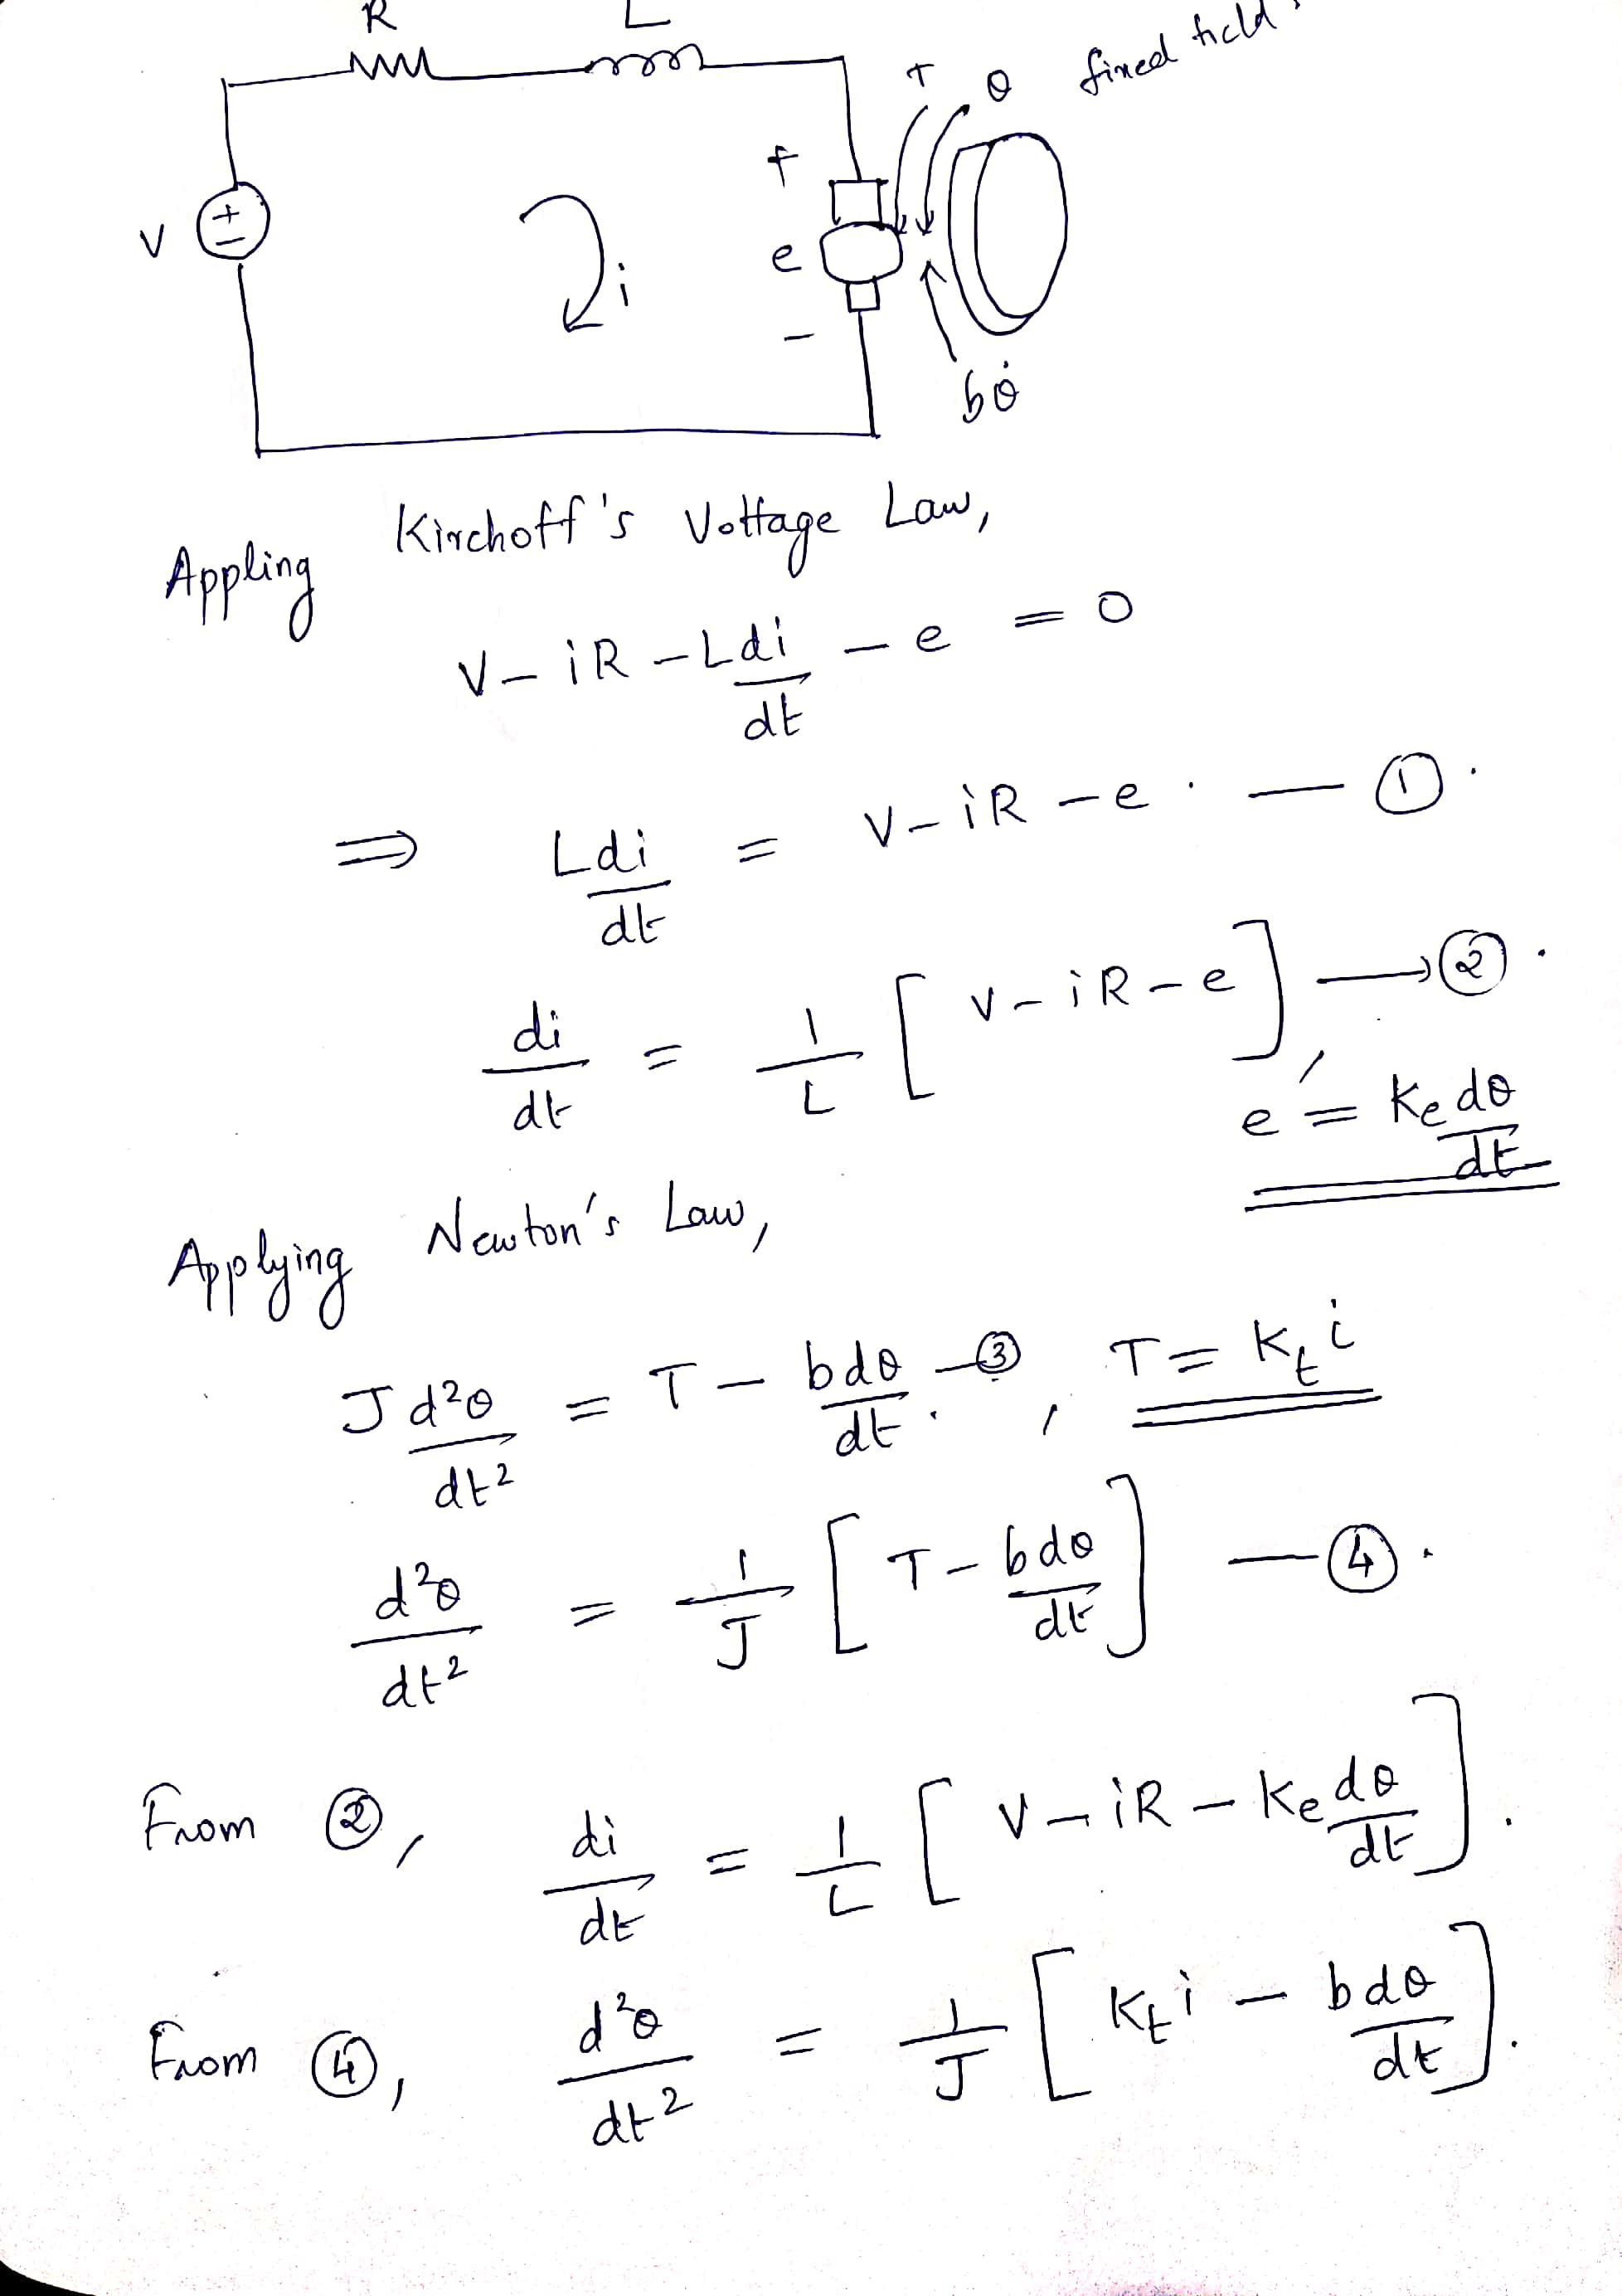 R L
T θ fixed field
V + − i + e −
bθ̇
Appling Kirchoff's Voltage Law,
V − iR − L di/dt − e = 0
⇒ L di/dt = V − iR − e . — ①.
di/dt = 1/L [ V − iR − e ] → ②.
, e = Ke dθ/dt
Applying Newton's Law,
J d²θ/dt² = T − b dθ/dt . — ③ , T = Kt i
d²θ/dt² = 1/J [ T − b dθ/dt ] — ④.
From ②, di/dt = 1/L [ V − iR − Ke dθ/dt ].
From ④, d²θ/dt² = 1/J [ Kt i − b dθ/dt ].